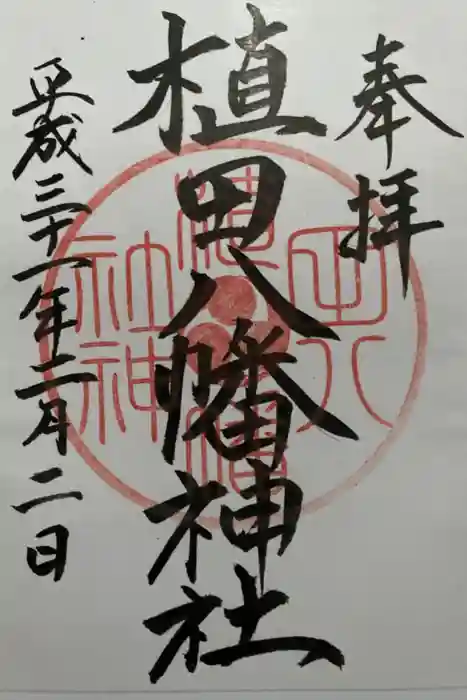 奉拝
植田八幡神社
平成三十一年二月二日